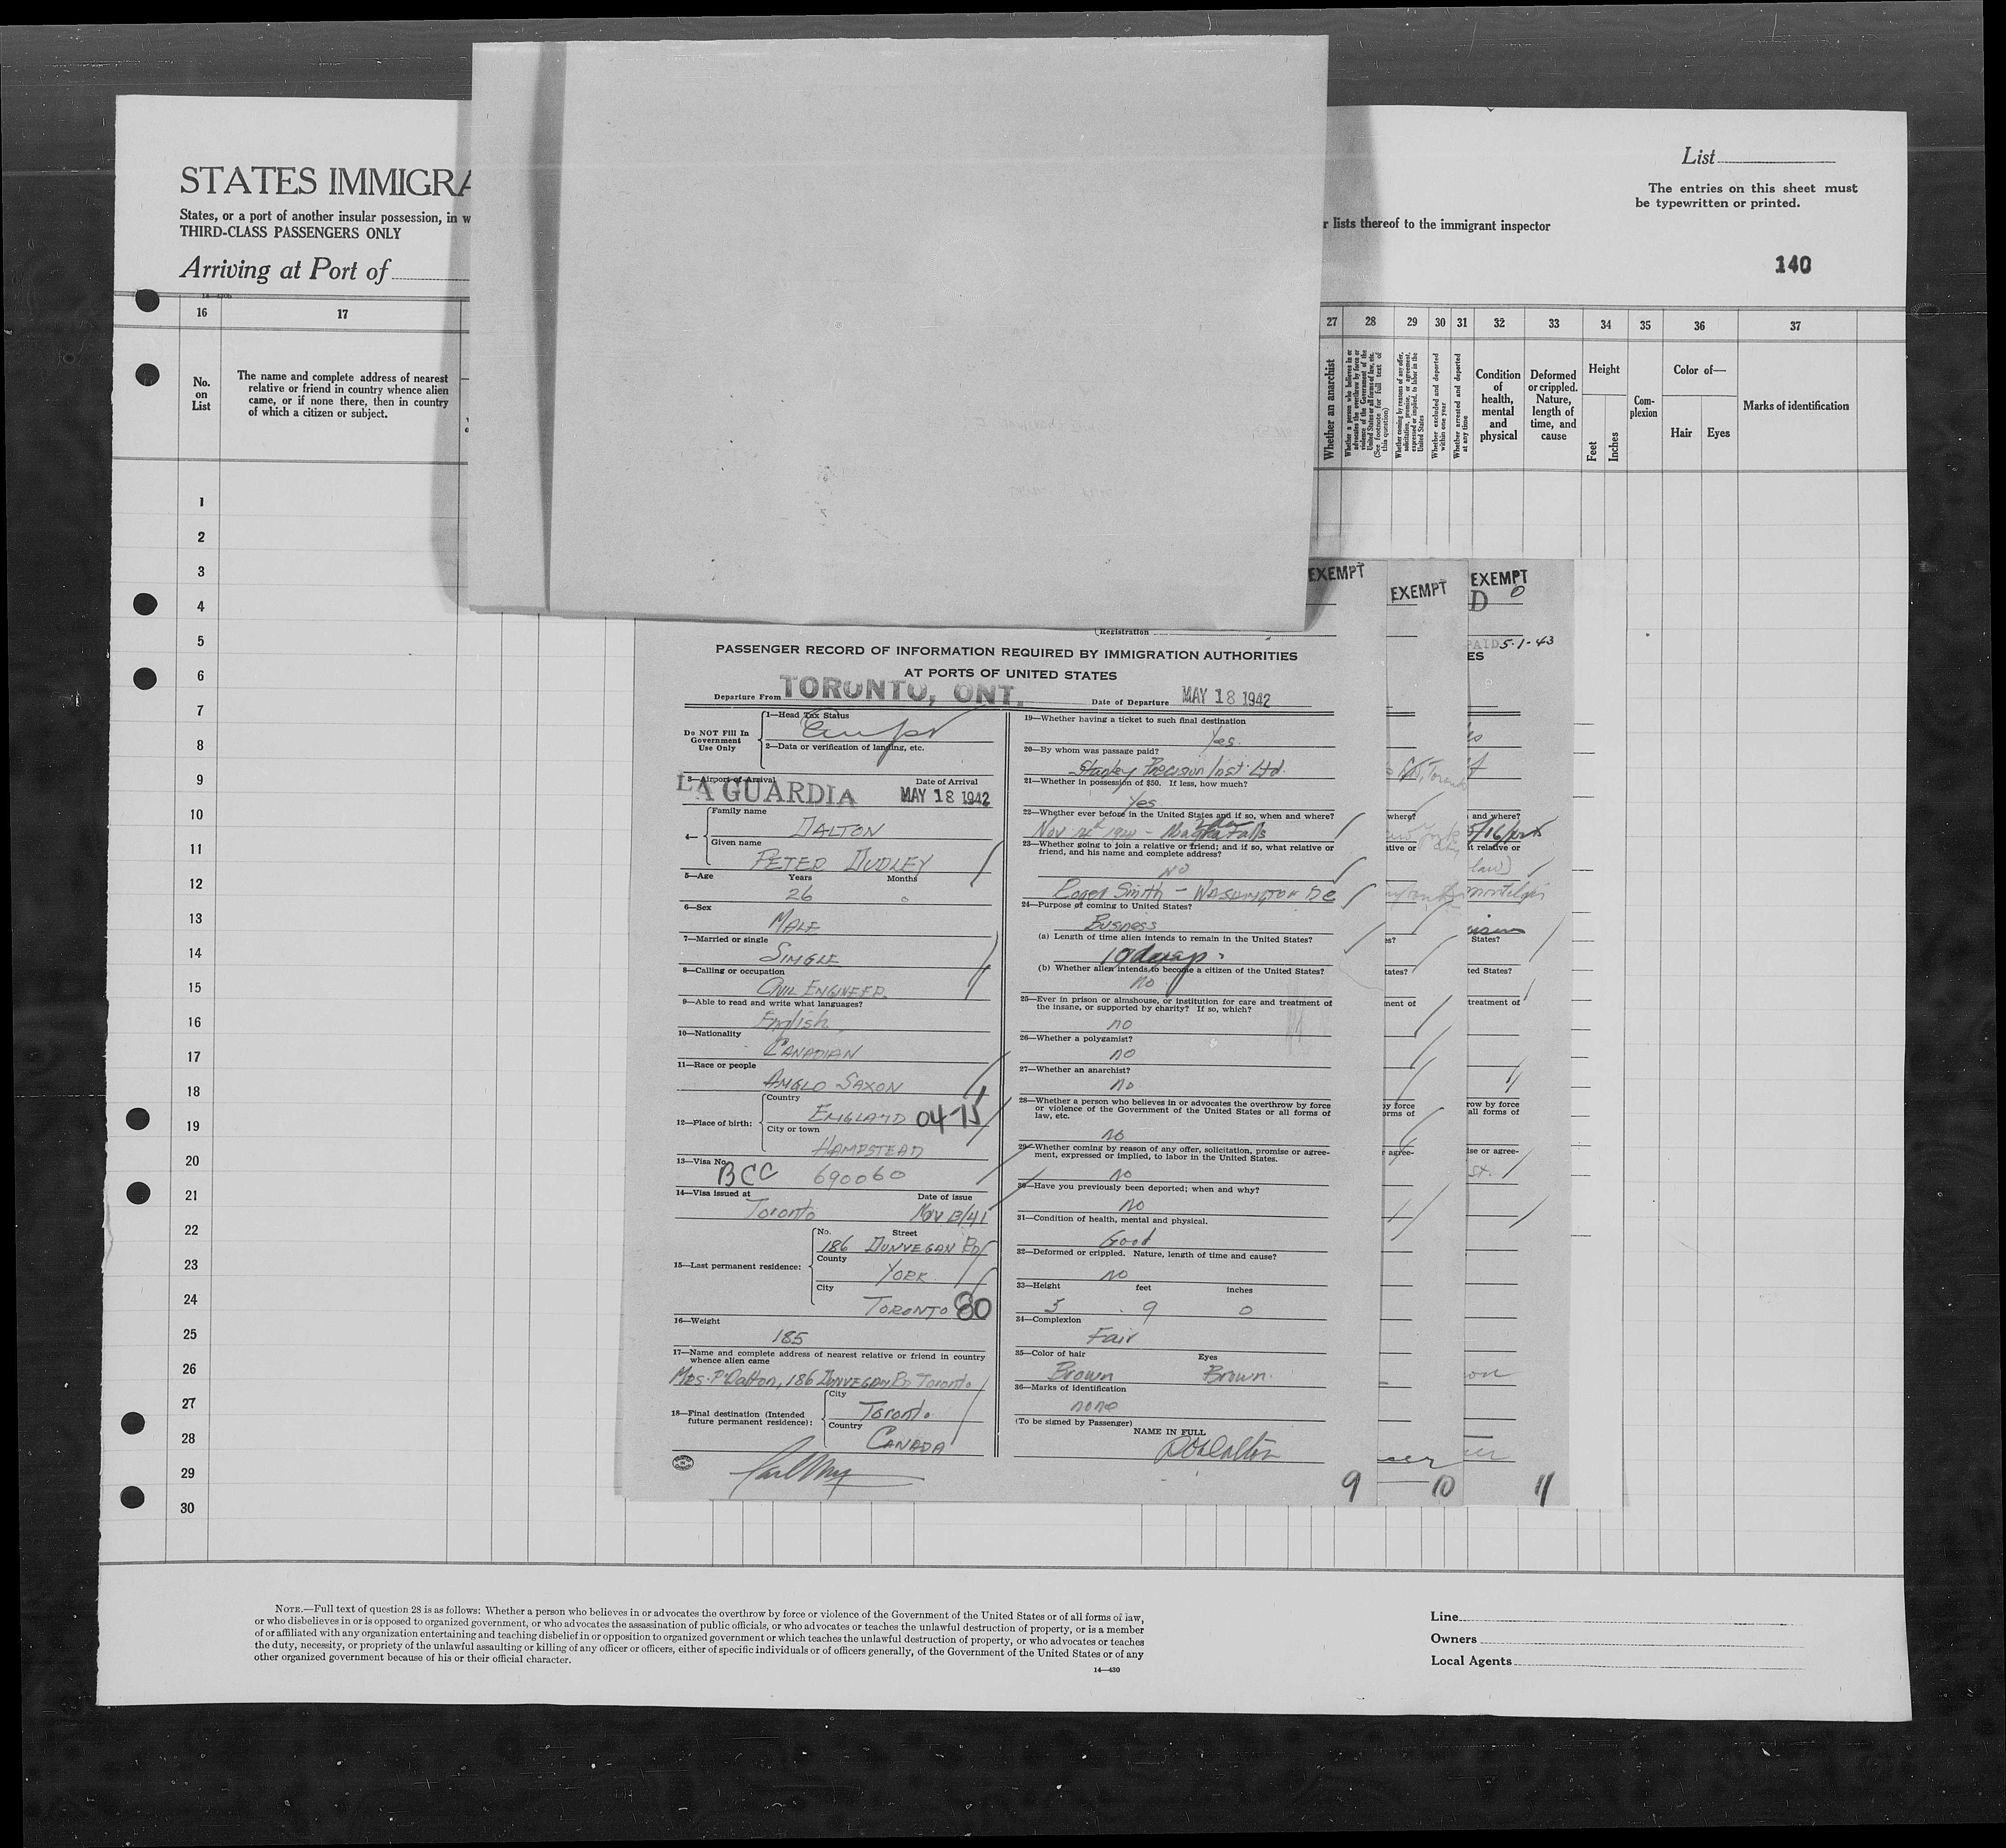 STATES IMMIGRA
States, or a port of another insular possession, in w
THIRD-CLASS PASSENGERS ONLY
Arriving at Port of
r lists thereof to the immigrant inspector
List
The entries on this sheet must
be typewritten or printed.
140
16 17 27 28 29 30 31 32 33 34 35 36 37
No.
on
List
The name and complete address of nearest
relative or friend in country whence alien
came, or if none there, then in country
of which a citizen or subject.
Whether an anarchist
Whether a person who believes in or
advocates the overthrow by force or
violence of the Government of the
United States or all forms of law, etc.
(See footnote for full text of
this question)
Whether coming by reasons of any offer,
solicitation, promise, or agreement,
expressed or implied, to labor in the
United States
Whether excluded and deported
within one year
Whether arrested and deported
at any time
Condition
of
health,
mental
and
physical
Deformed
or crippled.
Nature,
length of
time, and
cause
Height
Feet
Inches
Com-
plexion
Color of—
Hair Eyes
Marks of identification
1
2
3
4
5
6
7
8
9
10
11
12
13
14
15
16
17
18
19
20
21
22
23
24
25
26
27
28
29
30
EXEMPT
EXEMPT
EXEMPT
D 0
PAID 5-1-43
ES
Registration
PASSENGER RECORD OF INFORMATION REQUIRED BY IMMIGRATION AUTHORITIES
AT PORTS OF UNITED STATES
Departure From TORONTO, ONT.
Date of Departure MAY 18 1942
Do NOT Fill In
Government
Use Only
1—Head Tax Status
2—Data or verification of landing, etc.
3—Airport of Arrival Date of Arrival
LA GUARDIA MAY 18 1942
4— Family name
DALTON
Given name
PETER DUDLEY
5—Age Years Months
26 0
6—Sex
MALE
7—Married or single
SINGLE
8—Calling or occupation
CIVIL ENGINEER
9—Able to read and write what languages?
English
10—Nationality
CANADIAN
11—Race or people
ANGLO SAXON
12—Place of birth: Country
ENGLAND 04-75
City or town
HAMPSTEAD
13—Visa No.
BCC 690060
14—Visa issued at Date of issue
Toronto Nov 13/41
15—Last permanent residence: No. Street
186 DUNVEGAN RD
County
YORK
City
TORONTO 80
16—Weight
185
17—Name and complete address of nearest relative or friend in country
whence alien came
MRS. P. Dalton, 186 DUNVEGAN RD Toronto
18—Final destination (Intended
future permanent residence): City
Toronto
Country
CANADA
19—Whether having a ticket to such final destination
Yes.
20—By whom was passage paid?
Stanley Precision Inst. Ltd.
21—Whether in possession of $50. If less, how much?
Yes
22—Whether ever before in the United States and if so, when and where?
Falls
23—Whether going to join a relative or friend; and if so, what relative or
friend, and his name and complete address?
NO
Roger Smith - WASHINGTON DC
24—Purpose of coming to United States?
Business
(a) Length of time alien intends to remain in the United States?
10 days
(b) Whether alien intends to become a citizen of the United States?
no
25—Ever in prison or almshouse, or institution for care and treatment of
the insane, or supported by charity? If so, which?
no
26—Whether a polygamist?
no
27—Whether an anarchist?
no
28—Whether a person who believes in or advocates the overthrow by force
or violence of the Government of the United States or all forms of
law, etc.
no
29—Whether coming by reason of any offer, solicitation, promise or agree-
ment, expressed or implied, to labor in the United States.
no
30—Have you previously been deported; when and why?
no
31—Condition of health, mental and physical.
Good
32—Deformed or crippled. Nature, length of time and cause?
no
33—Height feet inches
5 9 0
34—Complexion
Fair
35—Color of hair Eyes
Brown Brown
36—Marks of identification
none
(To be signed by Passenger)
NAME IN FULL
PDDalton
9 10 11
where?
ative or
es?
tates?
ment of
by force
orms of
r agree-
and where?
t relative or
law)
States?
ted States?
treatment of
row by force
all forms of
ise or agree-
st.
NOTE.—Full text of question 28 is as follows: Whether a person who believes in or advocates the overthrow by force or violence of the Government of the United States or of all forms of law,
or who disbelieves in or is opposed to organized government, or who advocates the assassination of public officials, or who advocates or teaches the unlawful destruction of property, or is a member
of or affiliated with any organization entertaining and teaching disbelief in or opposition to organized government or which teaches the unlawful destruction of property, or who advocates or teaches
the duty, necessity, or propriety of the unlawful assaulting or killing of any officer or officers, either of specific individuals or of officers generally, of the Government of the United States or of any
other organized government because of his or their official character.
14—430
Line
Owners
Local Agents